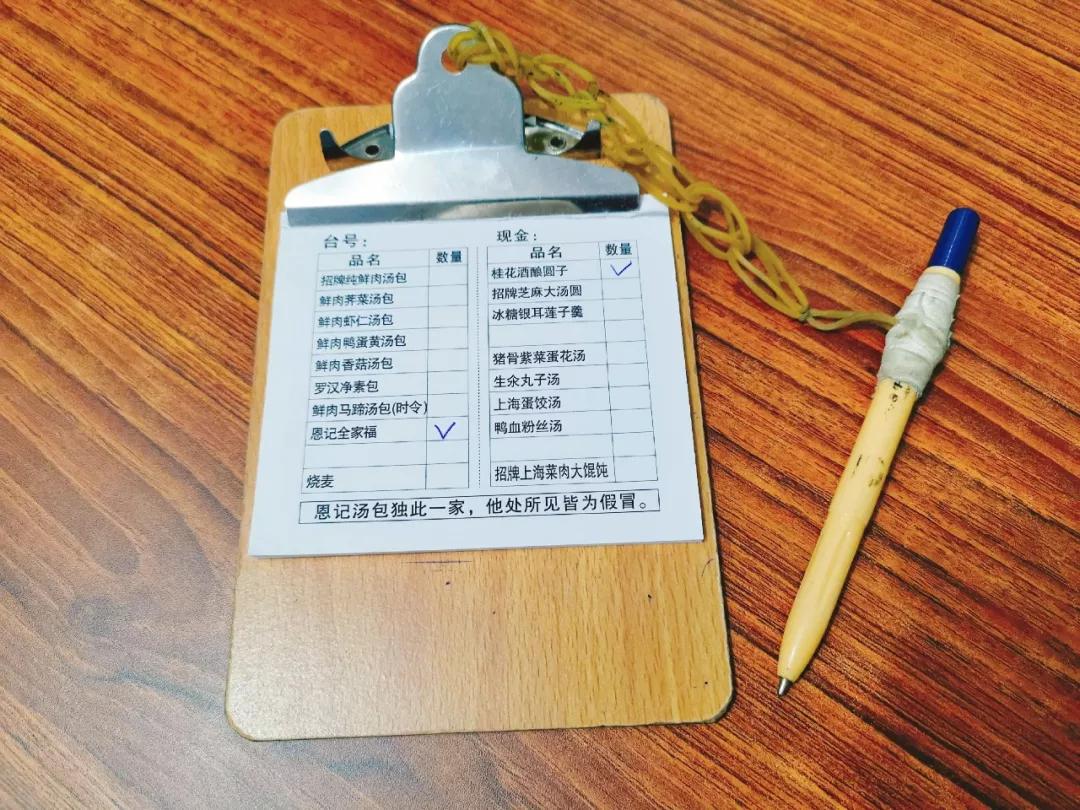 台号：
品名 数量
招牌纯鲜肉汤包
鲜肉荠菜汤包
鲜肉虾仁汤包
鲜肉鸭蛋黄汤包
鲜肉香菇汤包
罗汉净素包
鲜肉马蹄汤包(时令)
恩记全家福 ✓
烧麦
现金：
品名 数量
桂花酒酿圆子 ✓
招牌芝麻大汤圆
冰糖银耳莲子羹
猪骨紫菜蛋花汤
生汆丸子汤
上海蛋饺汤
鸭血粉丝汤
招牌上海菜肉大馄饨
恩记汤包独此一家，他处所见皆为假冒。